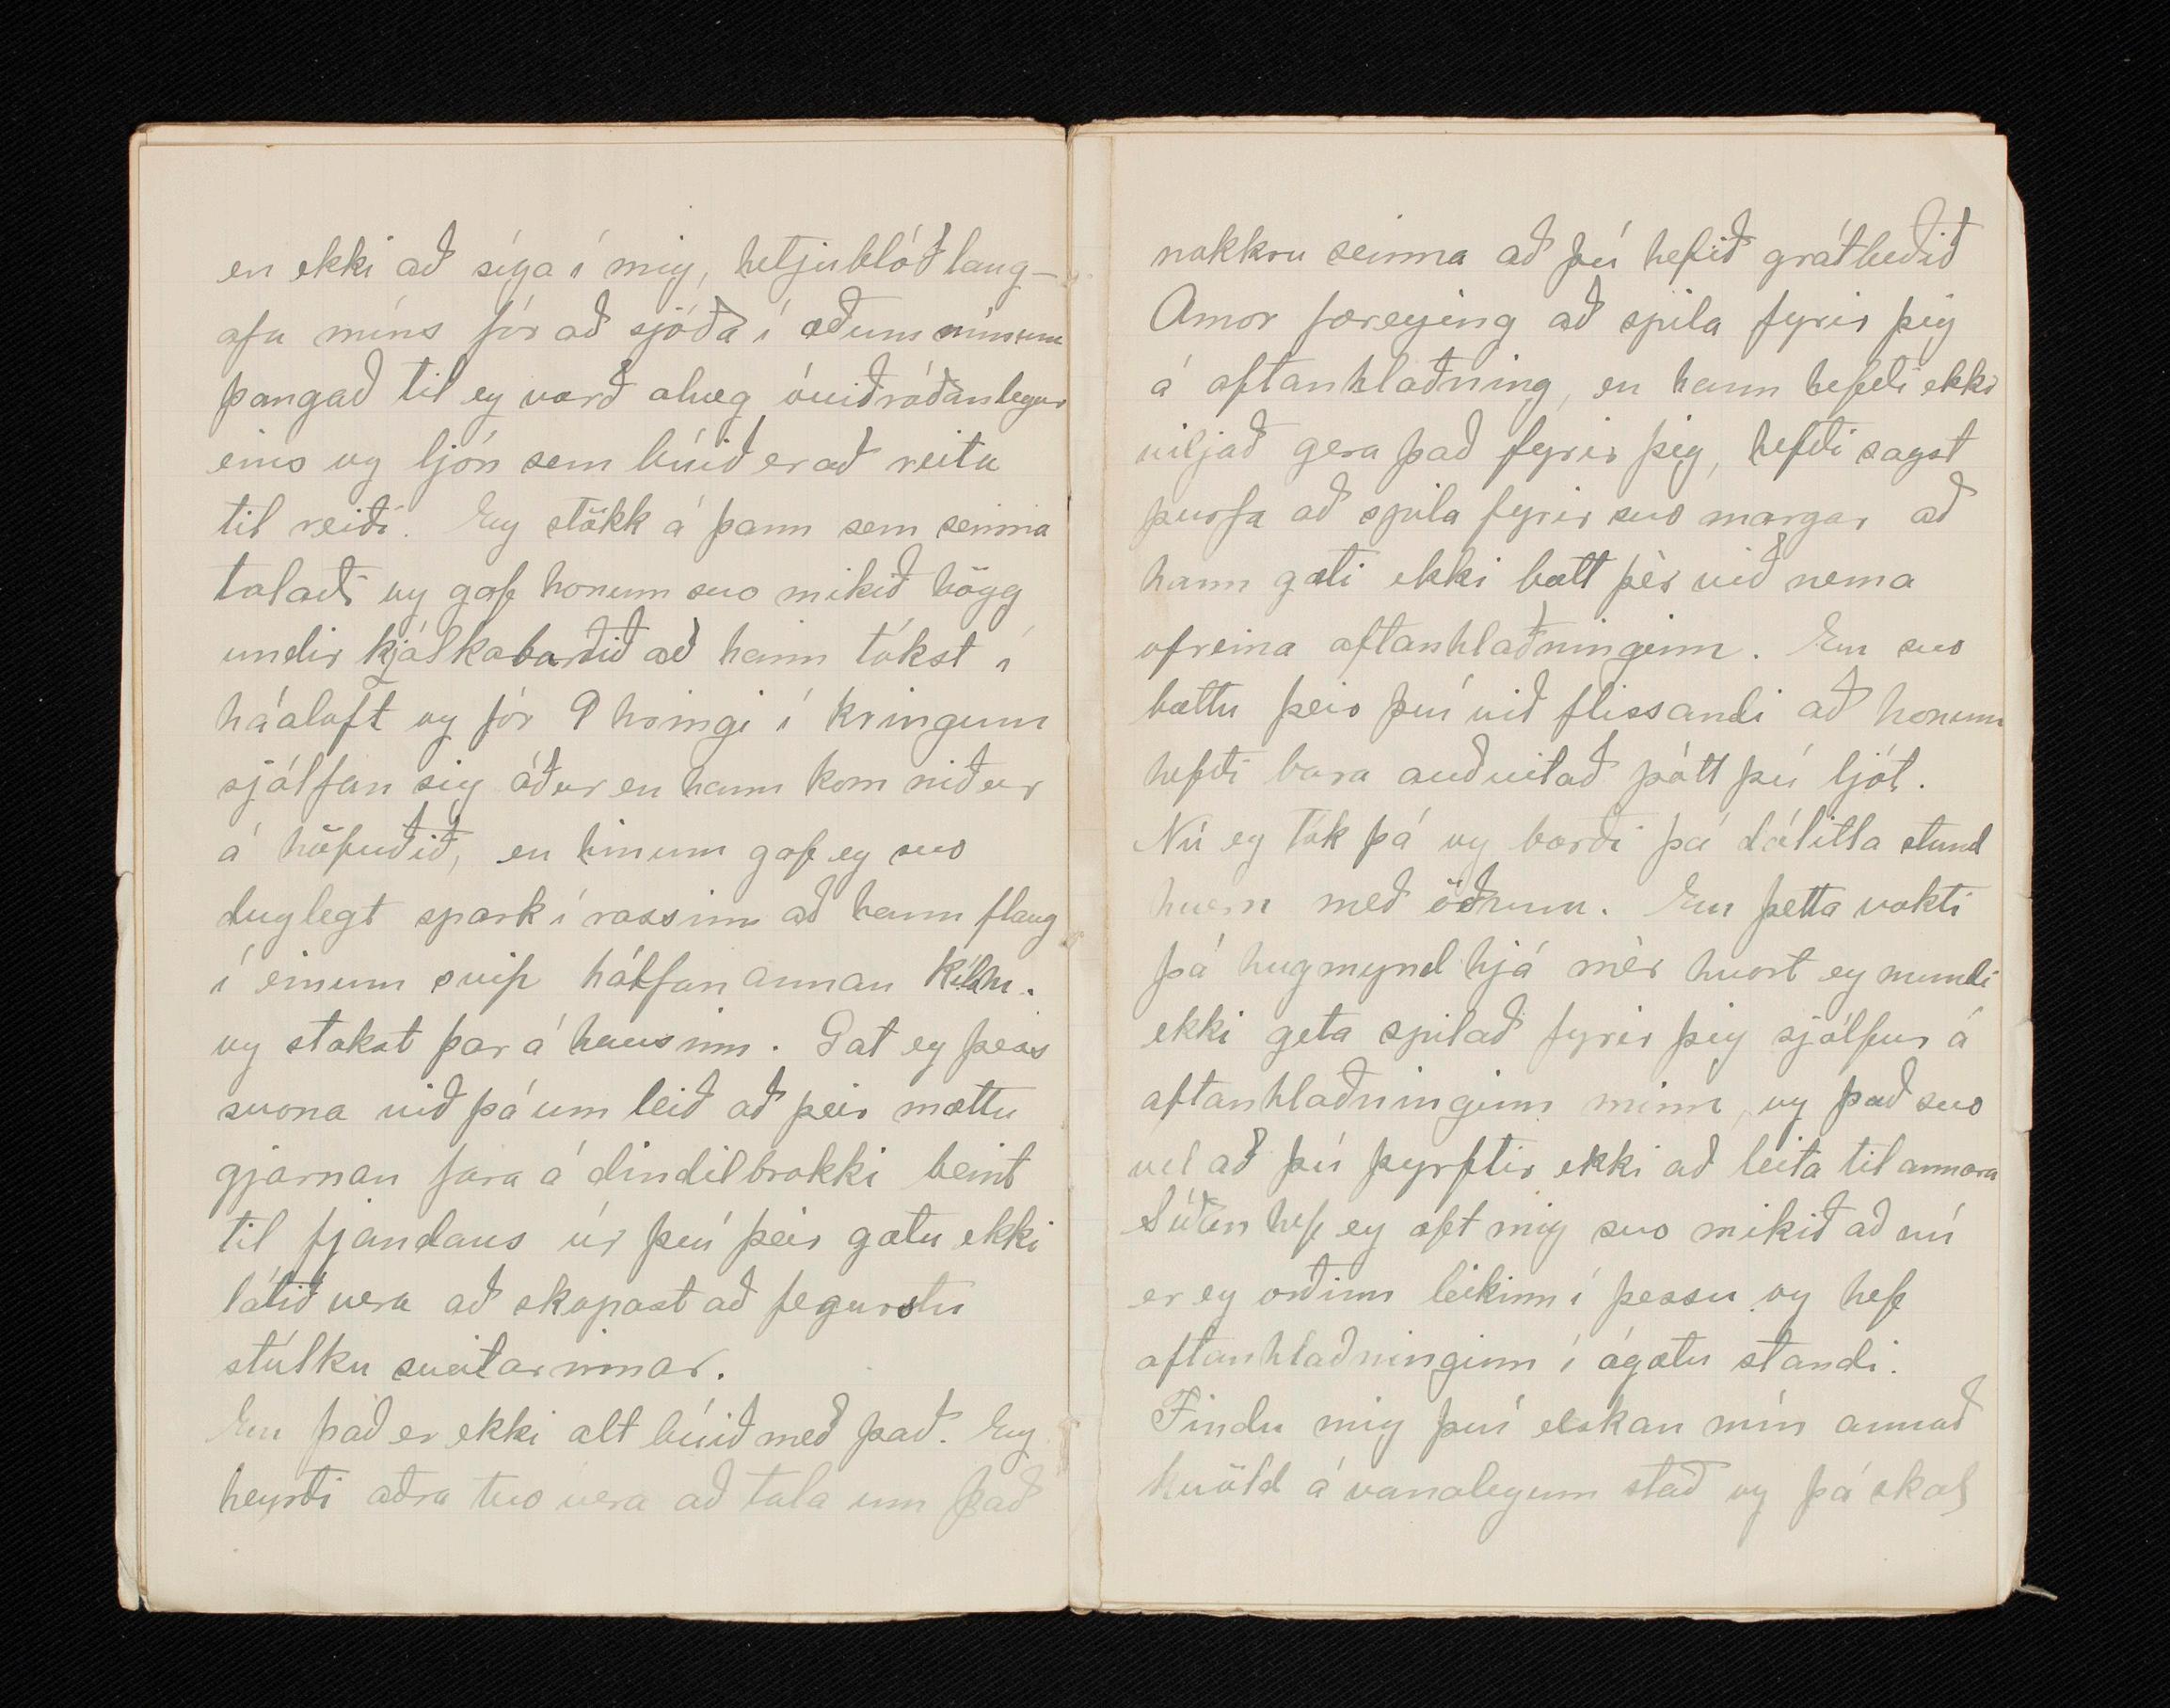 en ekki að síga í mig, hetjublóð lang-
afa míns fór að sjóða í æðum mínum
þangað til eg varð alveg óviðráðanlegur
eins og ljón sem búið er að reita
til reiði. Eg stökk á þann sem seinna
talaði og gaf honum svo mikið högg
undir kjálkabarðið að hann tókst í
háaloft og fór 9 hringi í kringum
sjálfan sig áður en hann kom niður
á höfuðið, en hinum gaf eg svo
duglegt spark í rassinn að hann flaug
í einum svip hálfan annan Kílm.
og stakst þar á hausinn. Gat eg þess
svona við þá um leið að þeir mættu
gjarnan fara á dindilbrokki beint
til fjandans úr því þeir gætu ekki
látið vera að skopast að fegurstu
stúlku sveitarinnar.
En það er ekki alt búið með það. Eg
heyrði aðra tvo vera að tala um það
nokkru seinna að þú hefið grátbeðið
Amor færeying að spila fyrir þig
á aftanhlaðning, en hann hefði ekki
viljað gera það fyrir þig, hefði sagst
þurfa að spila fyrir svo margar að
hann gæti ekki bætt þèr við nema
ofreina aftanhlaðninginn. En svo
bættu þeir því við flissandi að honum
hefði bara auðvitað þótt þú ljót.
Nú eg tók þá og barði þá dálitla stund
hvern með öðrum. En þetta vakti
þá hugmynd hjá mèr hvort eg mundi
ekki geta spilað fyrir þig sjálfur á
aftanhlaðninginn minn, og það svo
vel að þú þyrftir ekki að leita til annara
Síðan hef eg æft mig svo mikið að nú
er eg orðinn leikinn í þessu og hef
aftanhlaðninginn í ágætu standi.
Findu mig því elskan mín annað
kvöld á vanalegum stað og þá skal